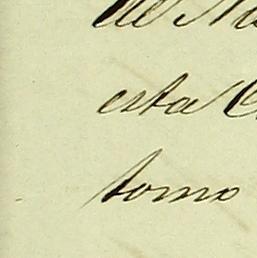 de
esta
tomo